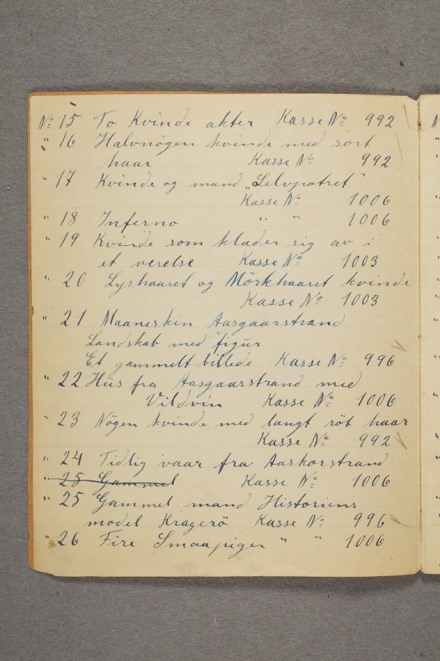 No 15 To Kvinde akter Kasse No 992
" 16 Halvnögen kvinde med sort
haar Kasse No 992
" 17 Kvinde og mand "Selvpotret"
Kasse No 1006
" 18 Inferno " " 1006
" 19 Kvinde som klæder sig av i
et verelse Kasse No 1003
" 20 Lyshaaret og Mörkhaaret kvinde
Kasse No 1003
" 21 Maaneskin Aasgaarstrand
Landskab med figur
Et gammelt billede Kasse No 996
" 22 Hus fra Aasgaarstrand med
Vildvin Kasse No 1006
" 23 Nögen kvinde med langt röt haar
Kasse No 992
" 24 Tidlig vaar fra Aaskorstrand
" 25 Gammel Kasse No 1006
" 25 Gammel mand Historiens
model Kragerö Kasse No 996
" 26 Fire Smaapiger " " 1006